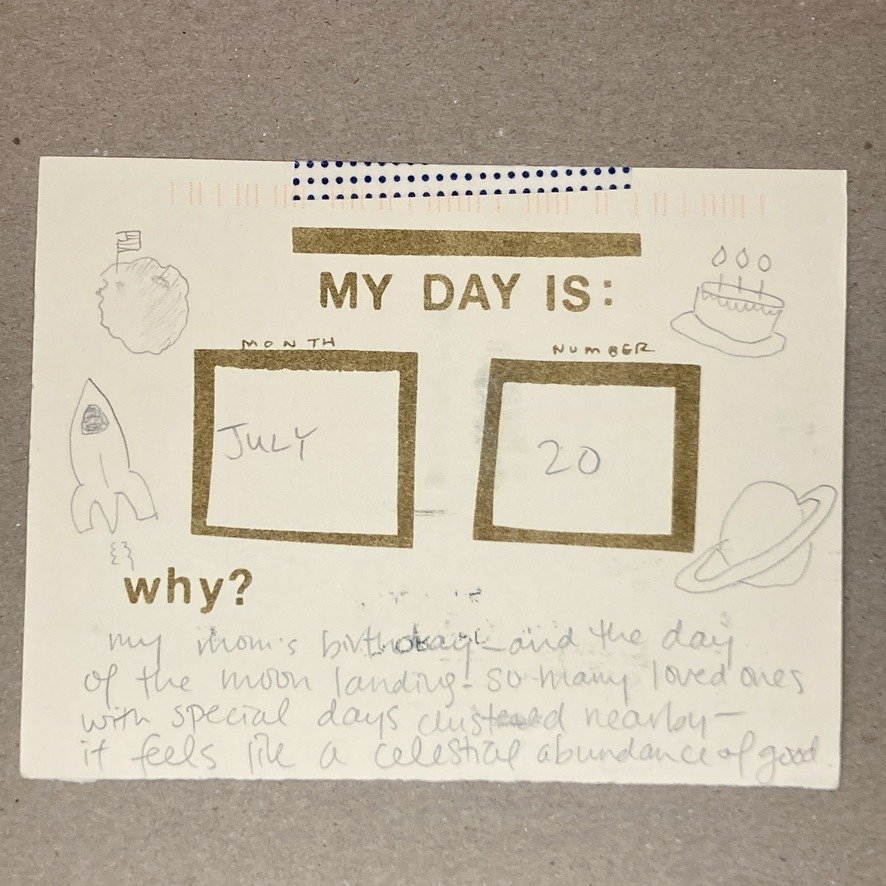 MY DAY IS:
MONTH
NUMBER
JULY
20
why?
my mom's birthday - and the day
of the moon landing - so many loved ones
with special days clustered nearby -
it feels like a celestial abundance of good